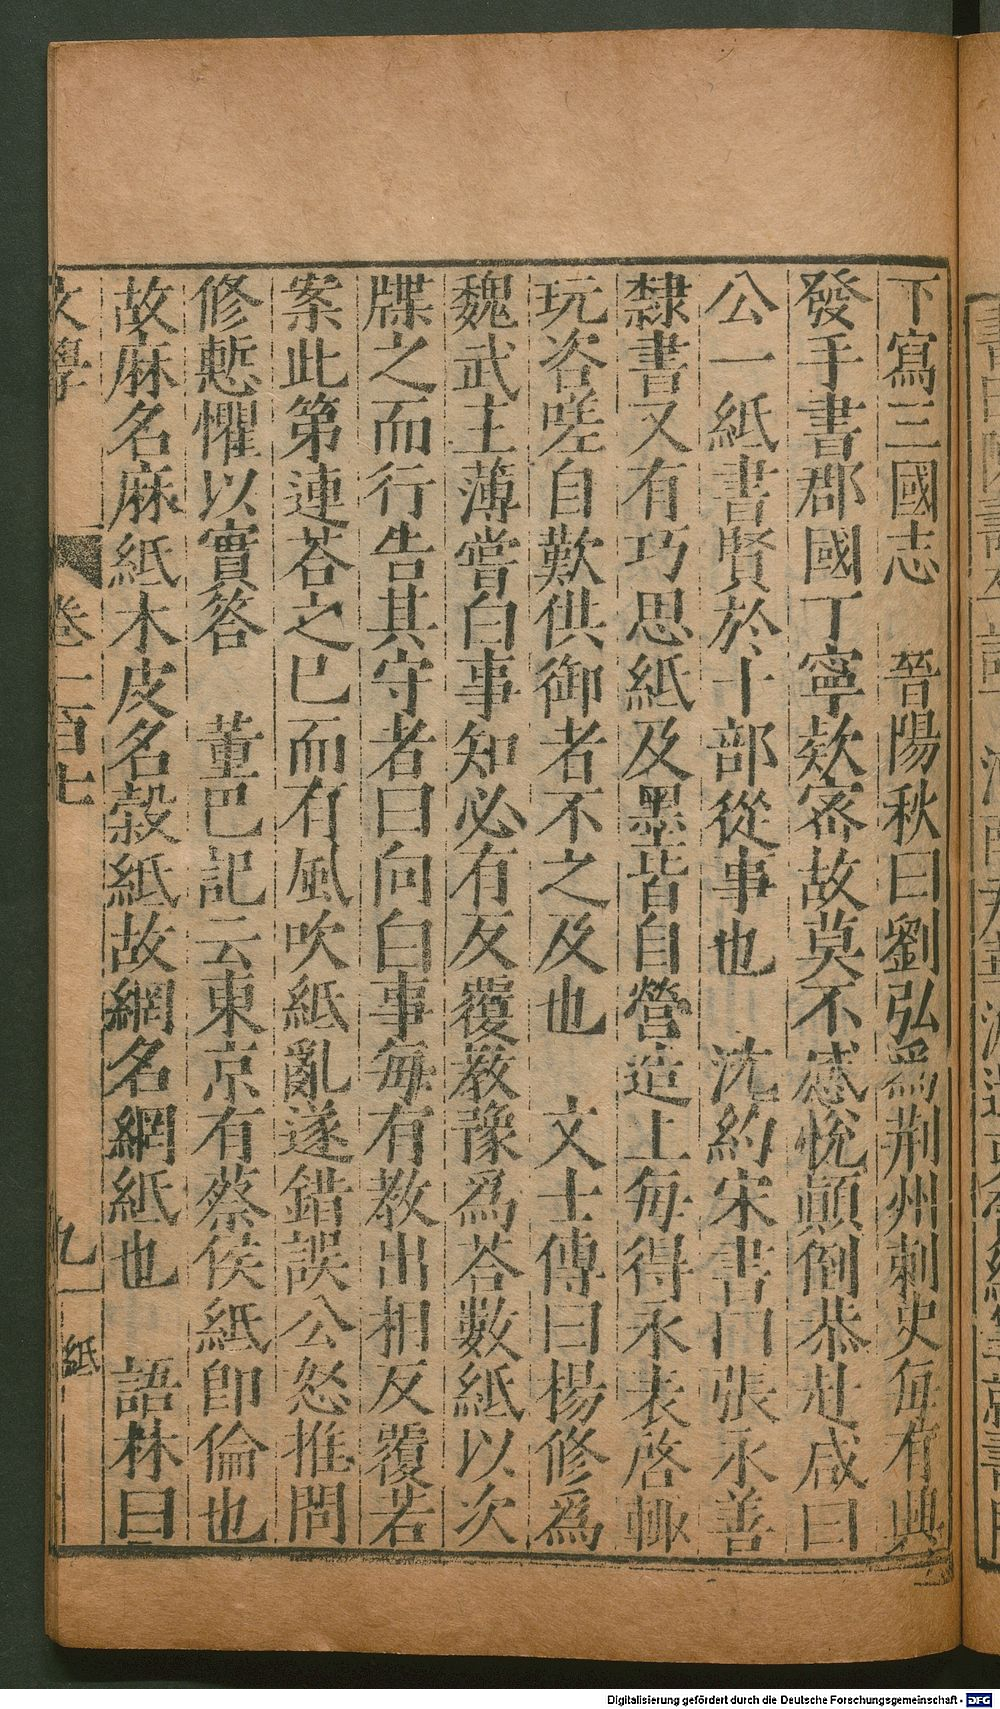 下寫三國志　晉陽秋曰劉弘爲荆州刺史每有興
發手書郡國丁寧欵密故莫不感悅顛倒恭赴咸曰
公一紙書賢於十部從事也　沈約宋書曰張永善
隸書又有巧思紙及墨皆自營造上每得永表啓輙
玩咨嗟自歎供御者不之及也　文士傳曰楊修爲
魏武主薄嘗白事知必有反覆教豫爲荅數紙以次
牒之而行告其守者曰向白事每有教出相反覆若
案此第連荅之已而有風吹紙亂遂錯誤公怒推問
修慙懼以實答　董巴記云東京有蔡侯紙即倫也
故麻名麻紙木皮名榖紙故網名網紙也　語林曰
文學　卷一百七　九　紙
Digitalisierung gefördert durch die Deutsche Forschungsgemeinschaft - DFG